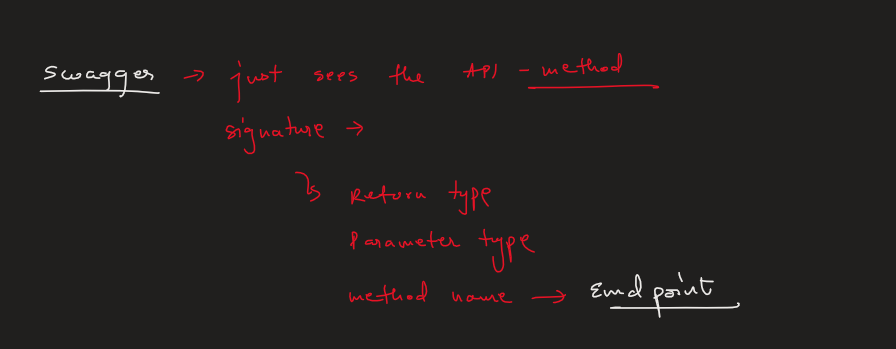 Swagger → just sees the API - method
signature →
↳ Return type
Parameter type
method name → Endpoint